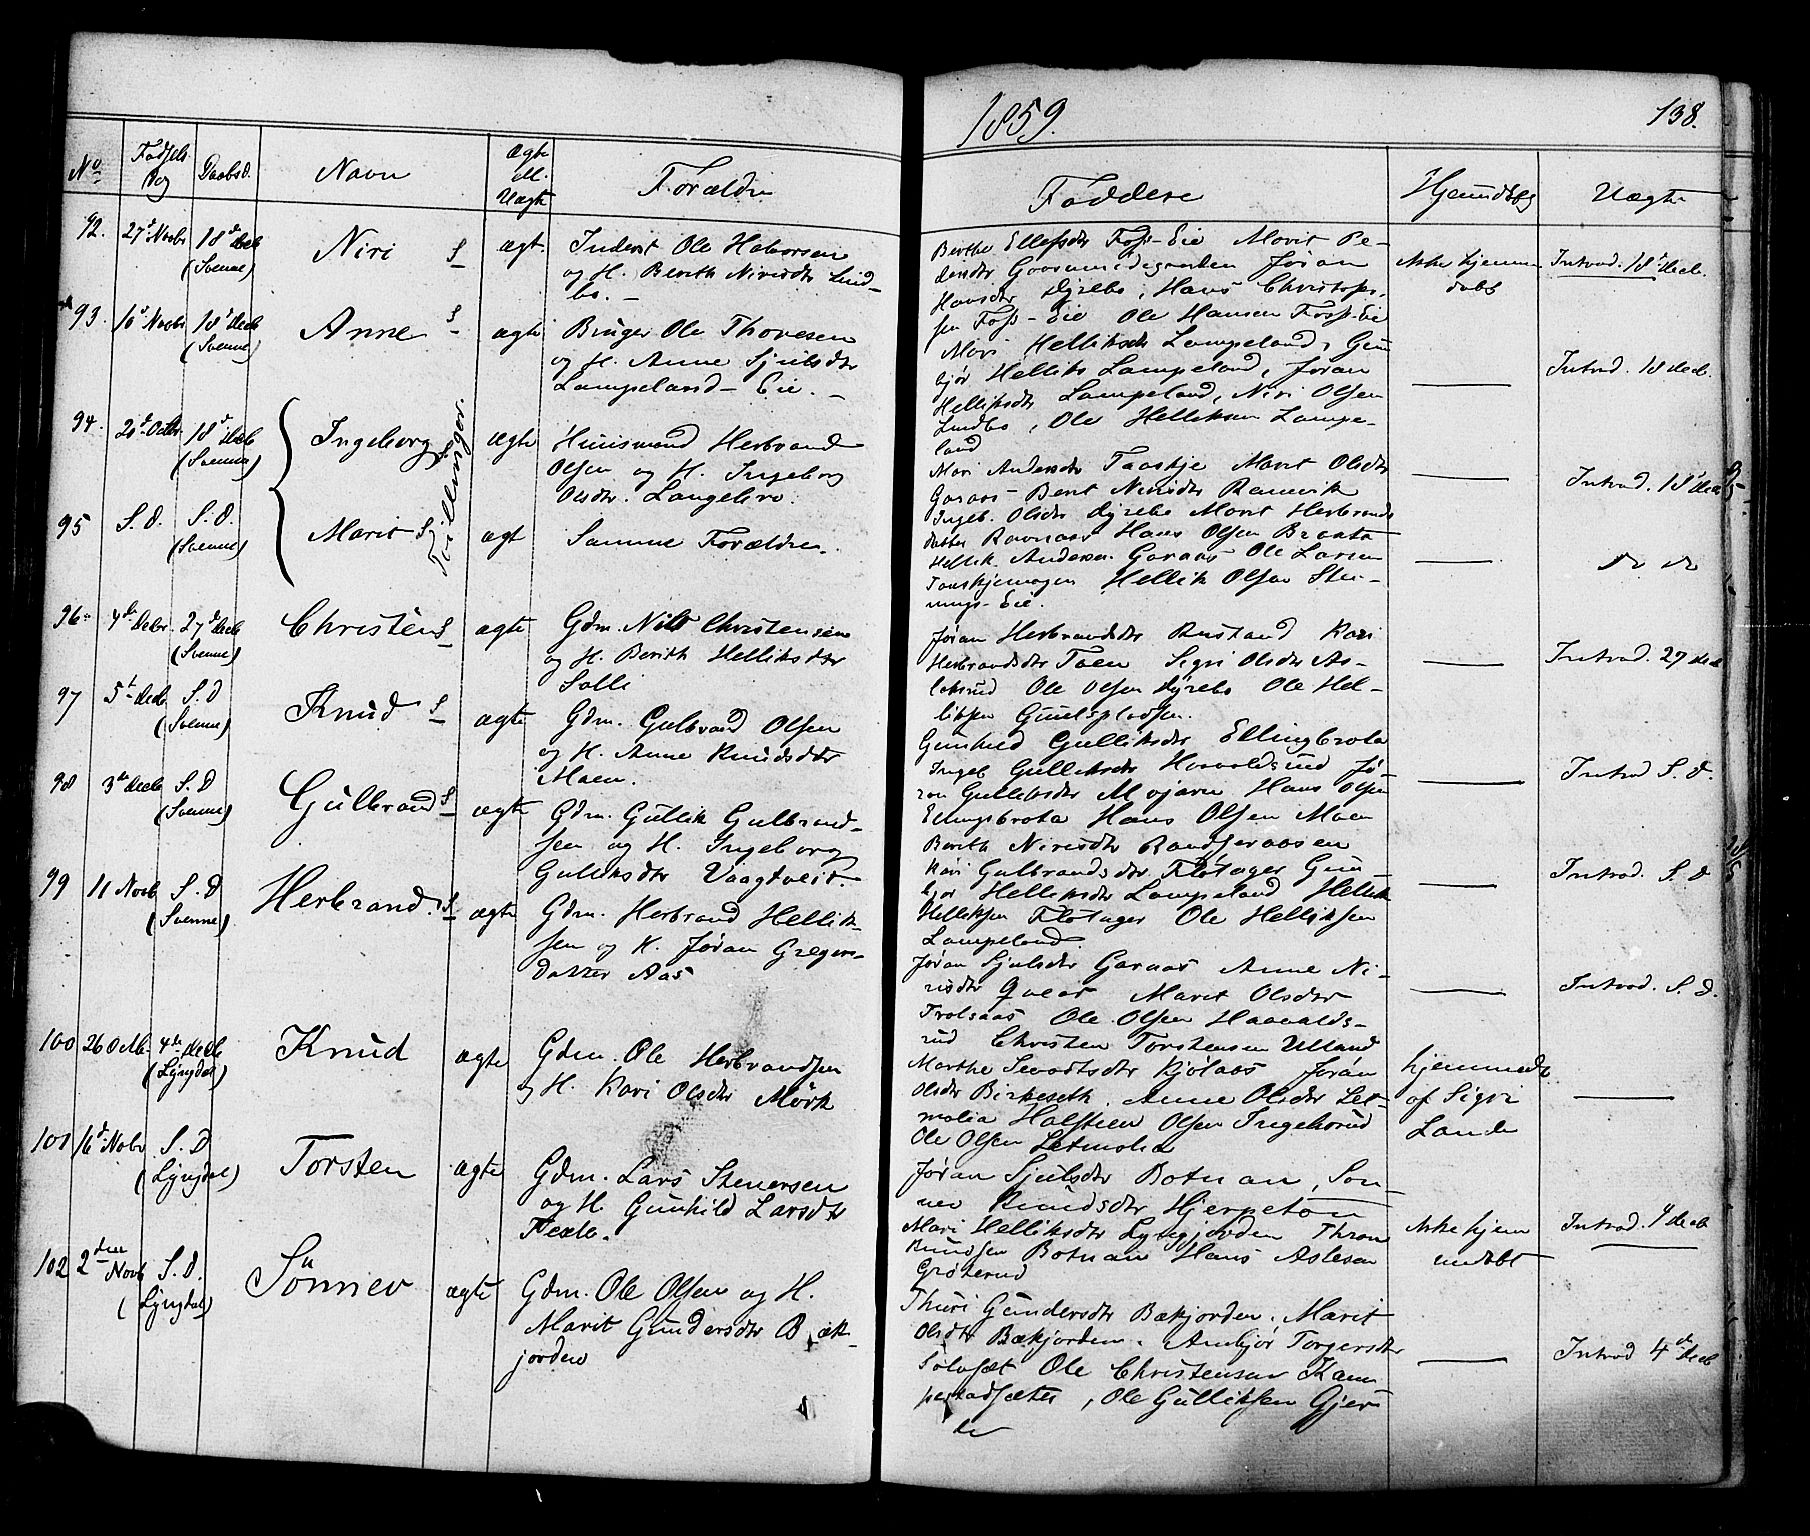 1859.
138.
No
Fødsels
Dag
Daabsd.
Navn
Ægte
ell.
Uægte
Forældre
Faddere
Hjemdbg
Uægte
92. 27d Novbr 18d decb (Svenne) Niri S ægt. Inderst Ole Haborsen
og H. Berith Nirisdtr Lind-
bo. -
Berthe Ellefsdtr Foss-Eie Marit Pe-
dersdtr Jøran
Hansdtr Dyrebo, Hans Christophs.
sen Foss-Eie Ole Hansen Foss-Eie
Ikke hjemme
døbt
Introd. 18 decb.
93. 16d Novbr 18d decb (Svenne) Anne S ægte Bruger Ole Thovesen
og H. Anne Sjulsdtr
Lampeland-Eie. -
Mari Helliksdtr Lampeland, Gun
bjør Helliks Lampeland, Jøran
Helliksdtr Lampeland, Niri Olsen
Lindbo, Ole Helliksen Lampe-
land
Introd. 18 decb.
94. 20d Octbr 18d decb (Svenne) Ingeborg S Tvillinger. ægte Huusmand Herbrand
Olsen og H. Ingeborg
Olsdtr. Langebro.
Mari Andersdtr Taaskje Marit Olsdtr
Garaas Berit Nirisdtr Ramvik
Ingeb. Olsdtr Dyrebo Marit Herbrands
datter Ravnaas Hans Olsen Braata
Hellik Andersen Garaas Ole Larsen
Taaskjemogen Hellik Olsen Sten-
nings-Eie.
Introd. 18 decb
95 S. D. S. D. (Svenne) Marit S ægt Samme Forældre.
do do
96. 4de Decbr 27d decb (Svenne) Christen S ægte Gdm. Nils Christensen
og H. Berith Helliksdtr
Solli
Jøran Herbrandsdtr Rustand Kari
Herbrandsdtr Toen Sigri Olsdtr As-
laksrud Ole Olsen Dyrebo Ole Hel-
liksen Gunelsplodsen.
Introd. 27 decb
97 5t decb S. D (Svenne) Knud S ægte Gdm. Gulbrand Olsen
og H. Anne Knudsdtr
Moen.
Gunhild Gulliksdtr Ellingbrota
Ingeb Gulliksdtr Haavaldsrud Jø-
ran Gulliksdtr Mojaren Hans Olsen
Ellingsbrota Hans Olsen Moen
Introd S. D.
98 3de decb S. D (Svenne) Gulbrand S ægte Gdm. Gullik Gulbrand-
sen og H. Ingeborg
Gulliksdtr Vaagtveit.
Berith Nirisdtr
Kari Gulbrandsdtr Flotager Gun-
bjør Helliksdtr Lampeland Hellik
Helliksen Flotager Ole Helliksen
Lampeland.
Introd. S. D
99 11 Novb S. D (Svenne) Herbrand. S ægte Gdm. Herbrand Hellik-
sen og H. Jøran Gregers-
datter Aas
Jøran Sjulsdtr Garaas Anne Ni-
risdtr Marit Olsdtr
Trolsaas Ole Olsen Haavalds-
rud Christen Torstensen Ulland
Introd. S. D.
100 26 Octb. 4de decb (Lyngdal) Knud ægte Gdm. Ole Herbrandsen
og H. Kari Olsdtr Mørk
Marthe Kjølaas Jøran
Olsdtr Birkeseth. Anne Olsdtr Let-
molia Halsteen Olsen Ingehorud
Ole Olsen Letmolia
hjemmedt
af Sigri
Lande
101 16d Novbr S. D (Lyngdal) Torsten ægte Gdm. Lars Stenersen
og H Gunhild Larsdtr
Jøran Sjulsdtr Botnan, Søn-
nev Knudsdtr Hjerpeton
Mari Helliksdtr Lyngjorden Thron
Knudsen Botnan Hans Aslesen
Grøterud
Ikke hjem
medøbt
Introd. 4 decb
102 2den Novb S. D. (Lyngdal) Sønnev ægte Gdm. Ole Olsen og H.
Marit Gundersdtr Bæk-
jorden
Thuri Gundersdtr Bækjorden. Marit
Olsdtr Bækjorden. Anbjør Torgersdtr
Solvsæt Ole Christensen Kam-
pestadsæter, Ole Gulliksen Gjer-
de
Introd 4d decb